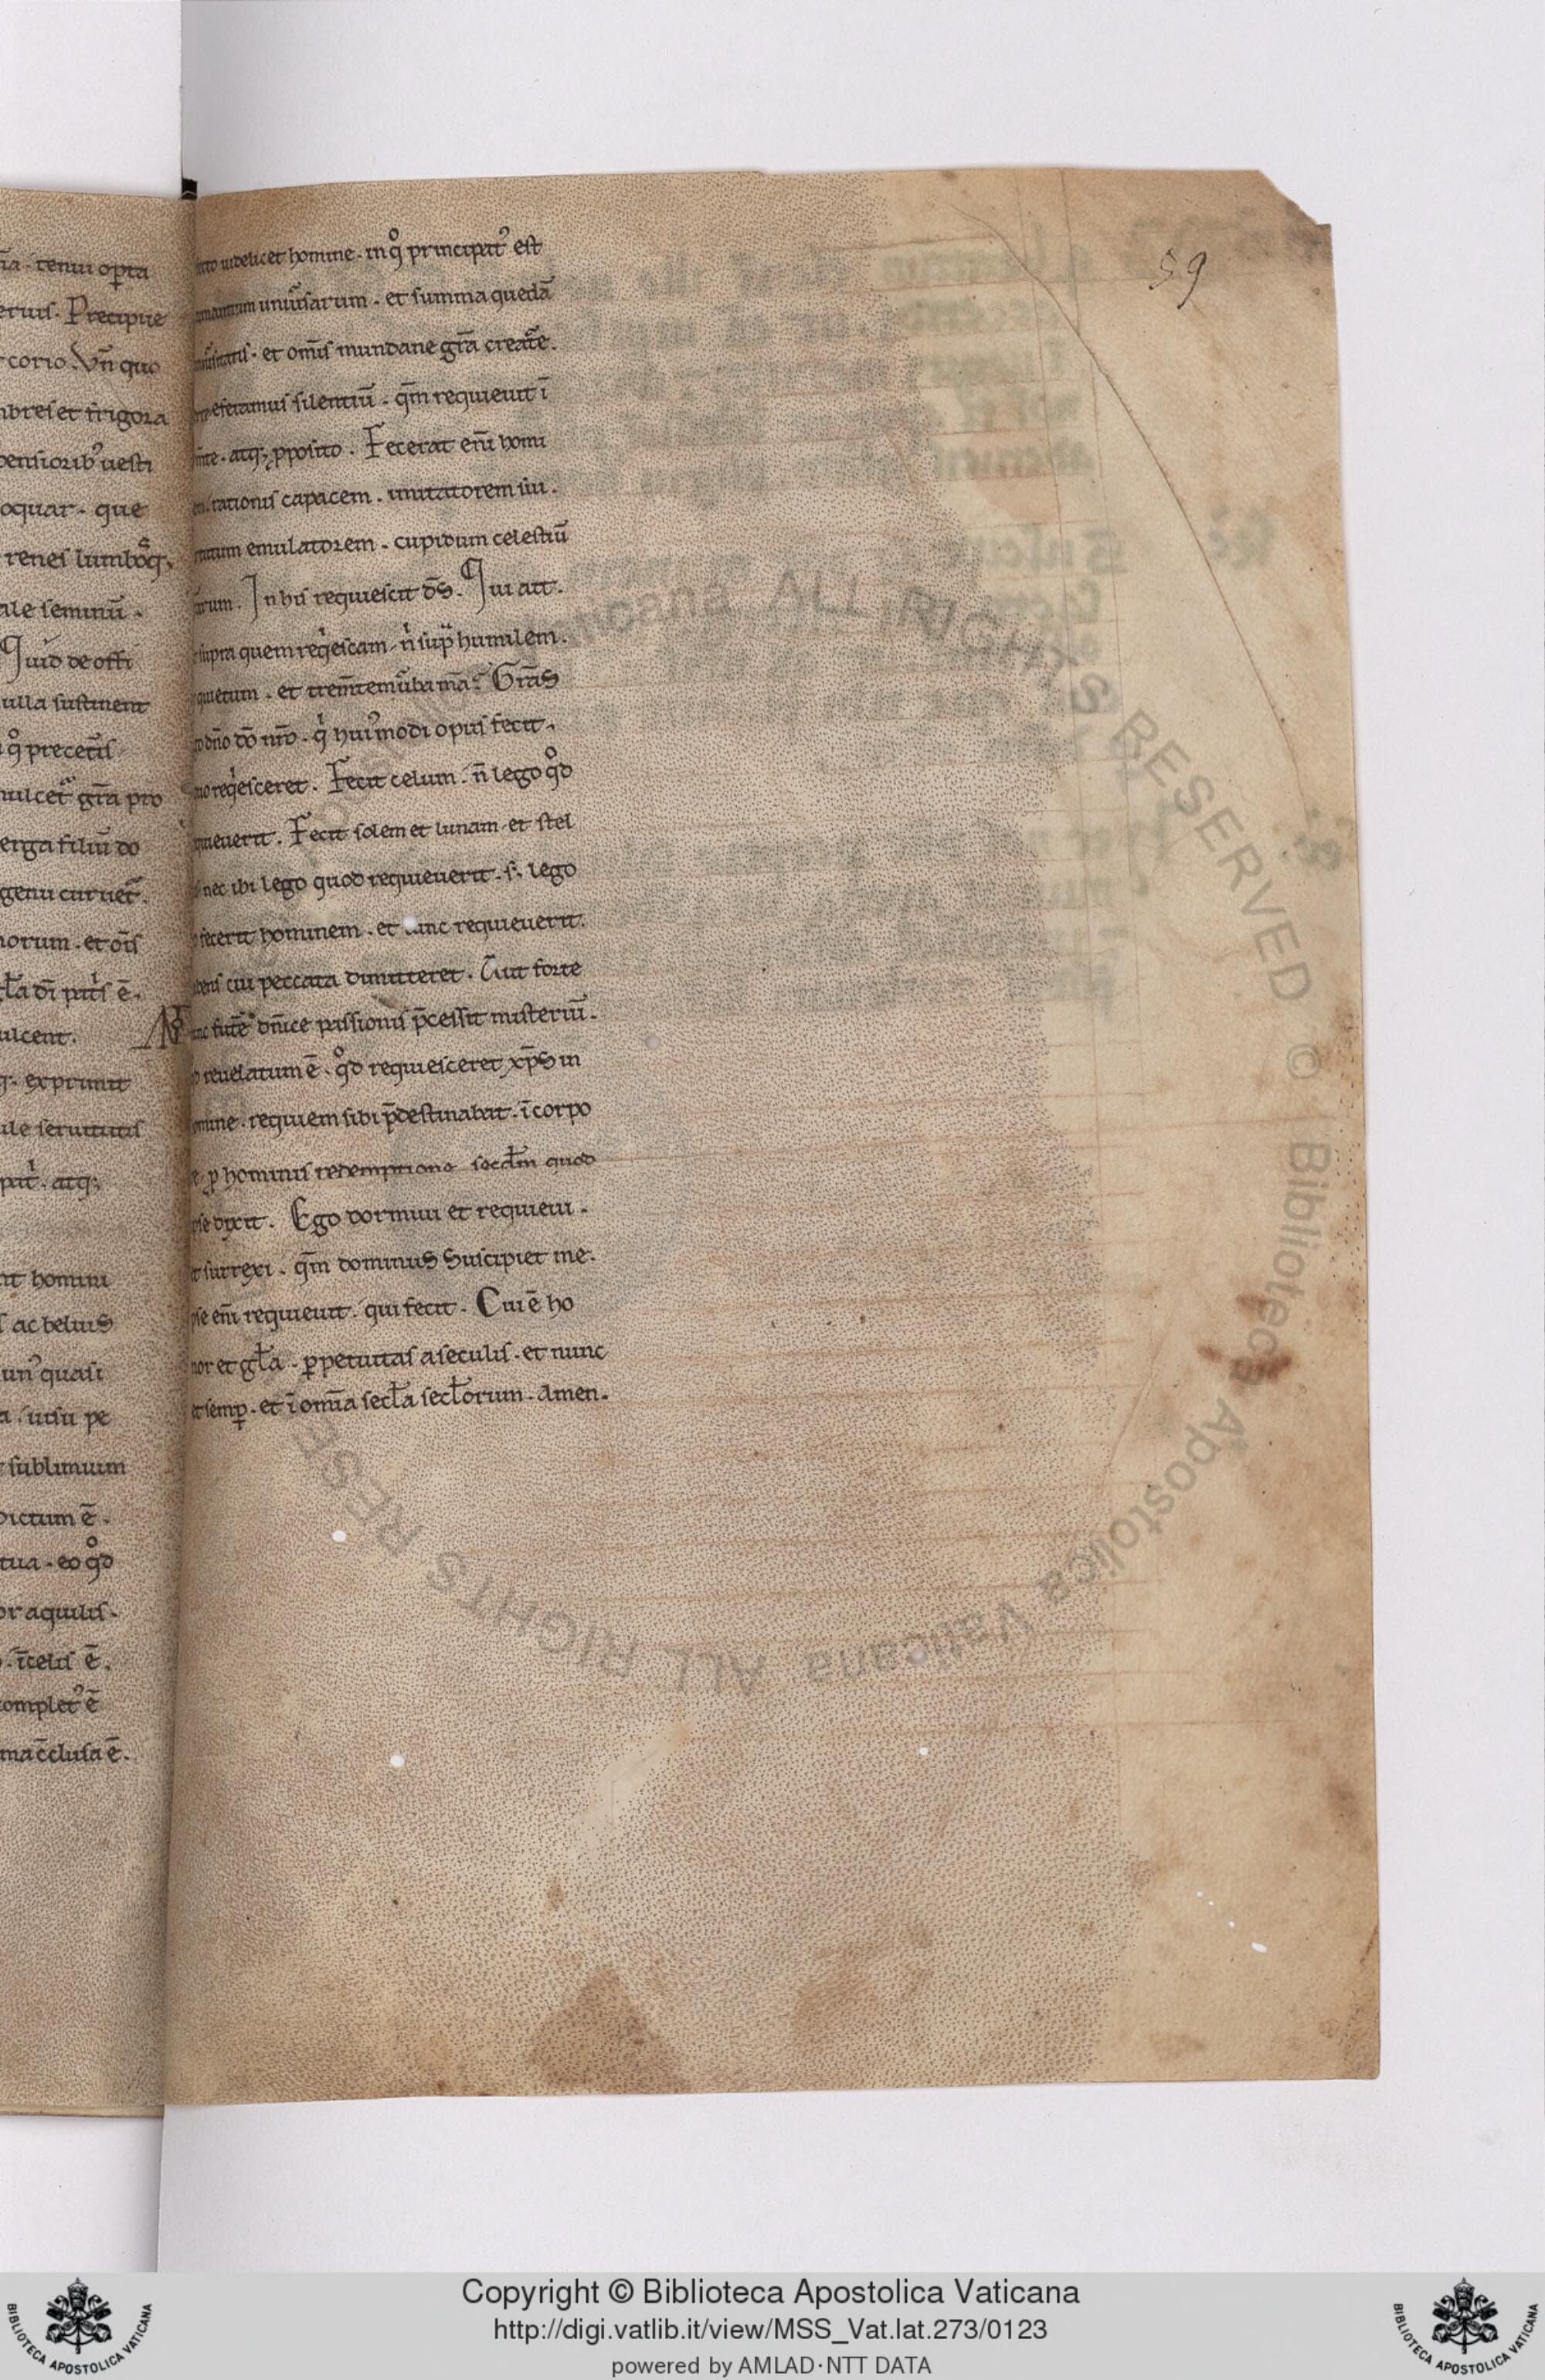 ñia · tenui opta
eruis · Precipue
corio . Vn̄ quo
nbres et frigora
pensiorib' uesti
oquar · que
renes lumbosq;
ale seminū ·
Quid de offi
ulla sustinent
qͦ precetis
mulcet gr̄a pro
erga filiū do
genu curuet .
norum · et oīs
gl̄a dī patͥs ē ·
ulcent .
q; exprimit
ile seruitutis
patͥ · atq;
nt homini
s ac beluis
un' quasi
a · uisu pe
sublimium
dictum ē ·
tua · eo qͦd
or aquilis ·
ī celis ē .
omplet' ē
ma c̄clusa ē ·
59
uidelicet homine · in qͦ principat' est
animantium uniūsarum · et summa quedā
et omīs mundane gr̄a creatͤe .
deferamus silentiū · qm̄ requieuit ī
atq; pposito . Fecerat enī homi
rationis capacem · imitatorem sui .
emulatorem · cupidum celestiū
arum . In his requiescit d̄s . Qui ait .
supra quem reqͥescam · nͥ sup̄ humilem ·
quietum · et trem̄tem ūba mā ? Gr̄as
dn̄o dō nr̄o · qͥ hui'modi opus fecit ·
reqͥesceret . Fecit celum · n̄ lego qͦd
requieuerit . Fecit solem et lunam · et stel
nec ibi lego quod requieuerit · s; lego
fecerit hominem · et tunc requieuerit .
habens cui peccata dimitteret . Aut forte
tunc futͤe dn̄ice passionis p̄cessit misteriū ·
reuelatum ē · qͦd requiesceret xp̄s in
homine · requiem sibi p̄destinabat · ī corpo
p hominis redemptione secdm̄ quod
ipse dixit . Ego dormiui et requieui ·
et surrexi · qm̄ dominus suscipiet me ·
ipse enī requieuit · qui fecit · Cui ē ho
nor et gl̄a · ppetuitas a seculis · et nunc
et semp · et ī omīa secl̄a secl̄orum · Amen ·
ALL RIGHTS RESERVED © Biblioteca Apostolica Vaticana
Copyright © Biblioteca Apostolica Vaticana
http://digi.vatlib.it/view/MSS_Vat.lat.273/0123
powered by AMLAD·NTT DATA
BIBLIOTECA APOSTOLICA VATICANA
BIBLIOTECA APOSTOLICA VATICANA